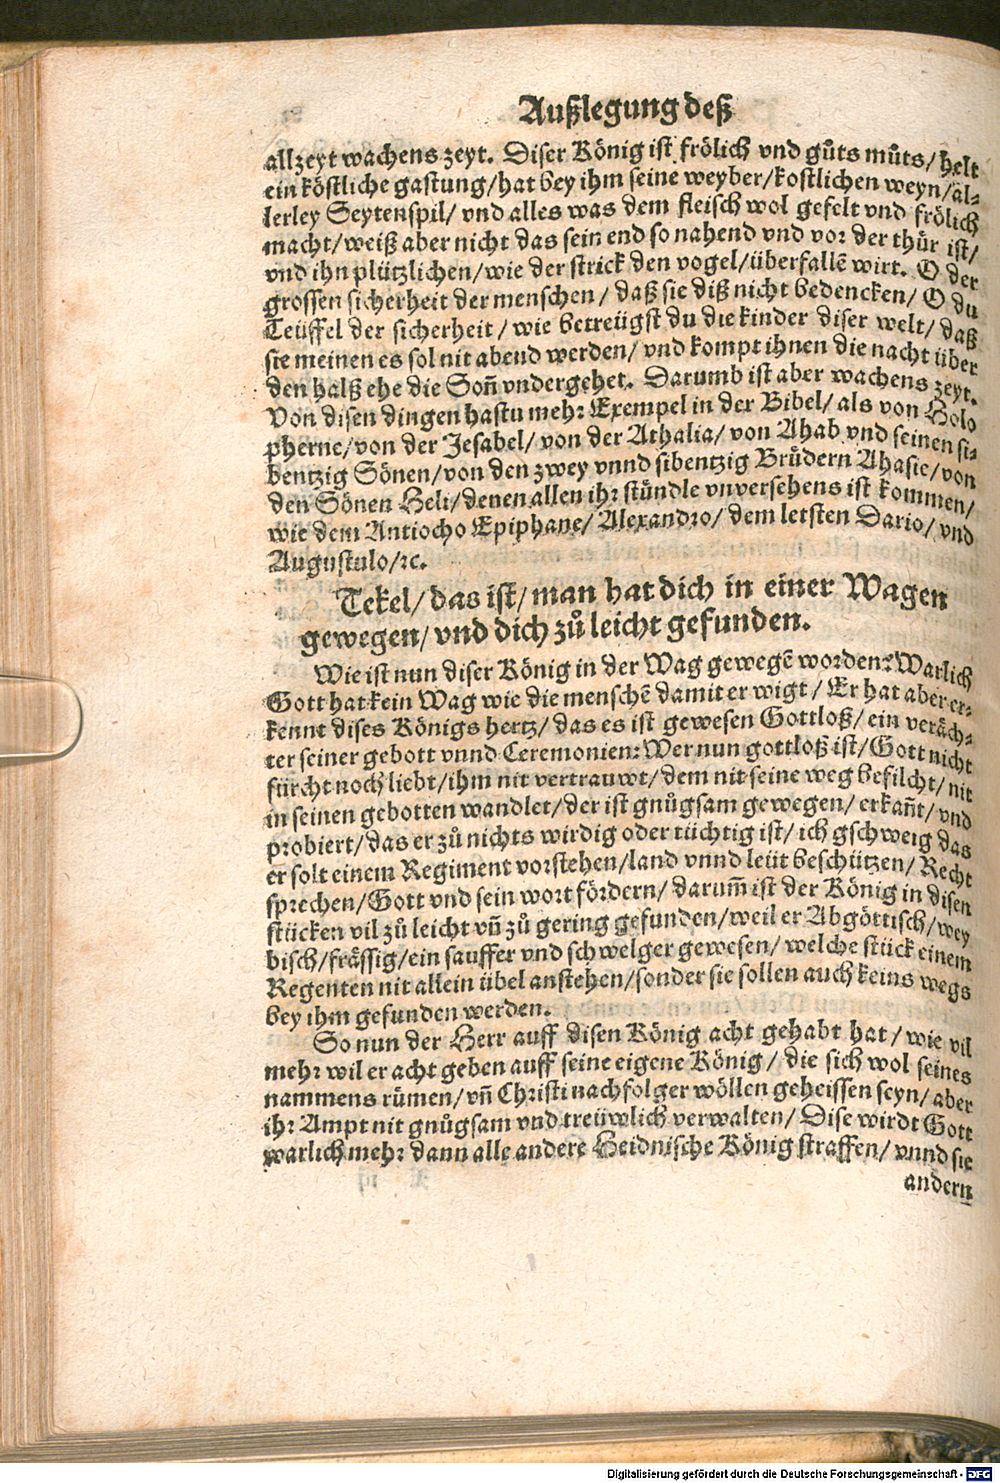 Außlegung deß
allzeyt wachens zeyt. Diser König ist frölich vnd gůts můts/ helt
ein köstliche gastung/ hat bey ihm seine weyber/ kostlichen weyn/ al-
lerley Seytenspil/ vnd alles was dem fleisch wol gefelt vnd frölich
macht/ weiß aber nicht das sein end so nahend vnd vor der thür ist/
vnd ihn plützlichen/ wie der strick den vogel/ überfallẽ wirt. O der
grossen sicherheit der menschen/ daß sie diß nicht bedencken/ O du
Teüffel der sicherheit/ wie betreügst du die kinder diser welt/ daß
sie meinen es sol nit abend werden/ vnd kompt ihnen die nacht über
den halß ehe die Soñ vndergehet. Darumb ist aber wachens zeyt.
Von disen dingen hastu mehr Exempel in der Bibel/ als von Holo
pherne/ von der Jesabel/ von der Athalia/ von Ahab vnd seinen si-
bentzig Sönen/ von den zwey vnnd sibentzig Brůdern Ahasie/ von
den Sönen Heli/ denen allen ihr stündle vnversehens ist kommen/
wie dem Antiocho Epiphane/ Alexandro/ dem letsten Dario/ vnd
Augustulo/ ꝛc.
Tekel/ das ist/ man hat dich in einer Wagen
gewegen/ vnd dich zů leicht gefunden.
Wie ist nun diser König in der Wag gewegẽ worden? Warlich
Gott hat kein Wag wie die menschẽ damit er wigt/ Er hat aber er-
kennt dises Königs hertz/ das es ist gewesen Gottloß/ ein veräch-
ter seiner gebott vnnd Ceremonien: Wer nun gottloß ist/ Gott nicht
fürcht noch liebt/ ihm nit vertrauwt/ dem nit seine weg befilcht/ nit
in seinen gebotten wandlet/ der ist gnůgsam gewegen/ erkañt/ vnd
probiert/ das er zů nichts wirdig oder tüchtig ist/ ich gschweig das
er solt einem Regiment vorstehen/ land vnnd leüt beschützen/ Recht
sprechen/ Gott vnd sein wort fördern/ darum̃ ist der König in disen
stücken vil zů leicht vñ zů gering gefunden/ weil er Abgöttisch/ wey
bisch/ frässig/ ein sauffer vnd schwelger gewesen/ welche stück einem
Regenten nit allein übel anstehen/ sonder sie sollen auch keins wegs
bey ihm gefunden werden.
So nun der Herr auff disen König acht gehabt hat/ wie vil
mehr wil er acht geben auff seine eigene König/ die sich wol seines
nammens rümen/ vñ Christi nachfolger wöllen geheissen seyn/ aber
ihr Ampt nit gnůgsam vnd treüwlich verwalten/ Dise wirdt Gott
warlich mehr dann alle andere Heidnische König straffen/ vnnd sie
andern
Digitalisierung gefördert durch die Deutsche Forschungsgemeinschaft - DFG